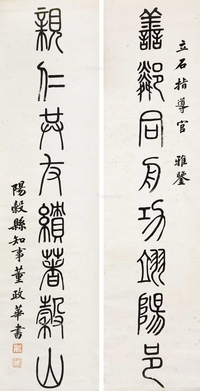 立石指導官 雅鑒
善鄰同舟功翊陽邑
親仁共友績著穀山
陽穀縣知事董政華書